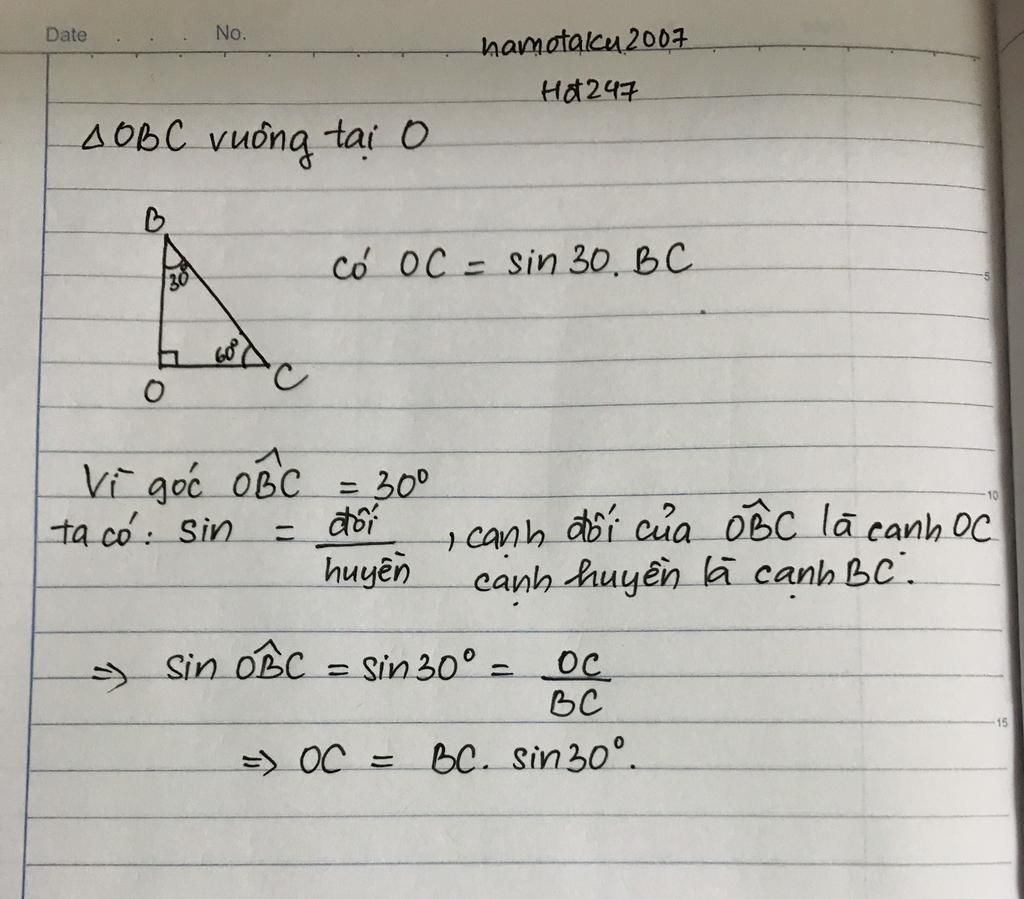 Date . . . No.
namotaku2007
Hot247
△OBC vuông tại O
B
30°
có OC = sin 30. BC
5
60°
O
C
Vì góc OB̂C = 30°
10
ta có: sin = đối/huyền , cạnh đối của OB̂C là cạnh OC
cạnh huyền là cạnh BC.
=> sin OB̂C = sin30° = OC/BC
15
=> OC = BC. sin30°.